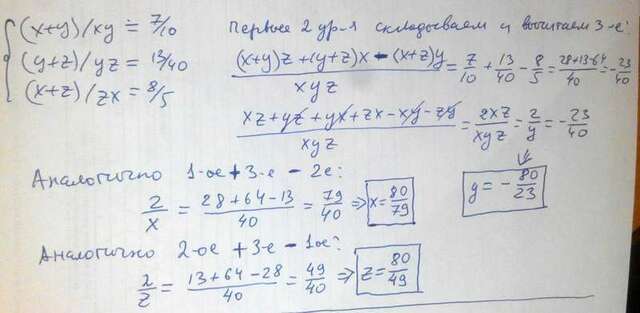 (x+y)/xy = 7/10
(y+z)/yz = 13/40
(x+z)/zx = 8/5
Первые 2 ур-я складываем и вычитаем 3-е:
((x+y)z+(y+z)x-(x+z)y)/xyz = 7/10 + 13/40 - 8/5 = (28+13-64)/40 = -23/40
(xz+yz+yx+zx-xy-zy)/xyz = 2xz/xyz = 2/y = -23/40
y = -80/23
Аналогично 1-ое + 3-е - 2е:
2/x = (28+64-13)/40 = 79/40 => x = 80/79
Аналогично 2-ое + 3-е - 1ое:
2/z = (13+64-28)/40 = 49/40 => z = 80/49